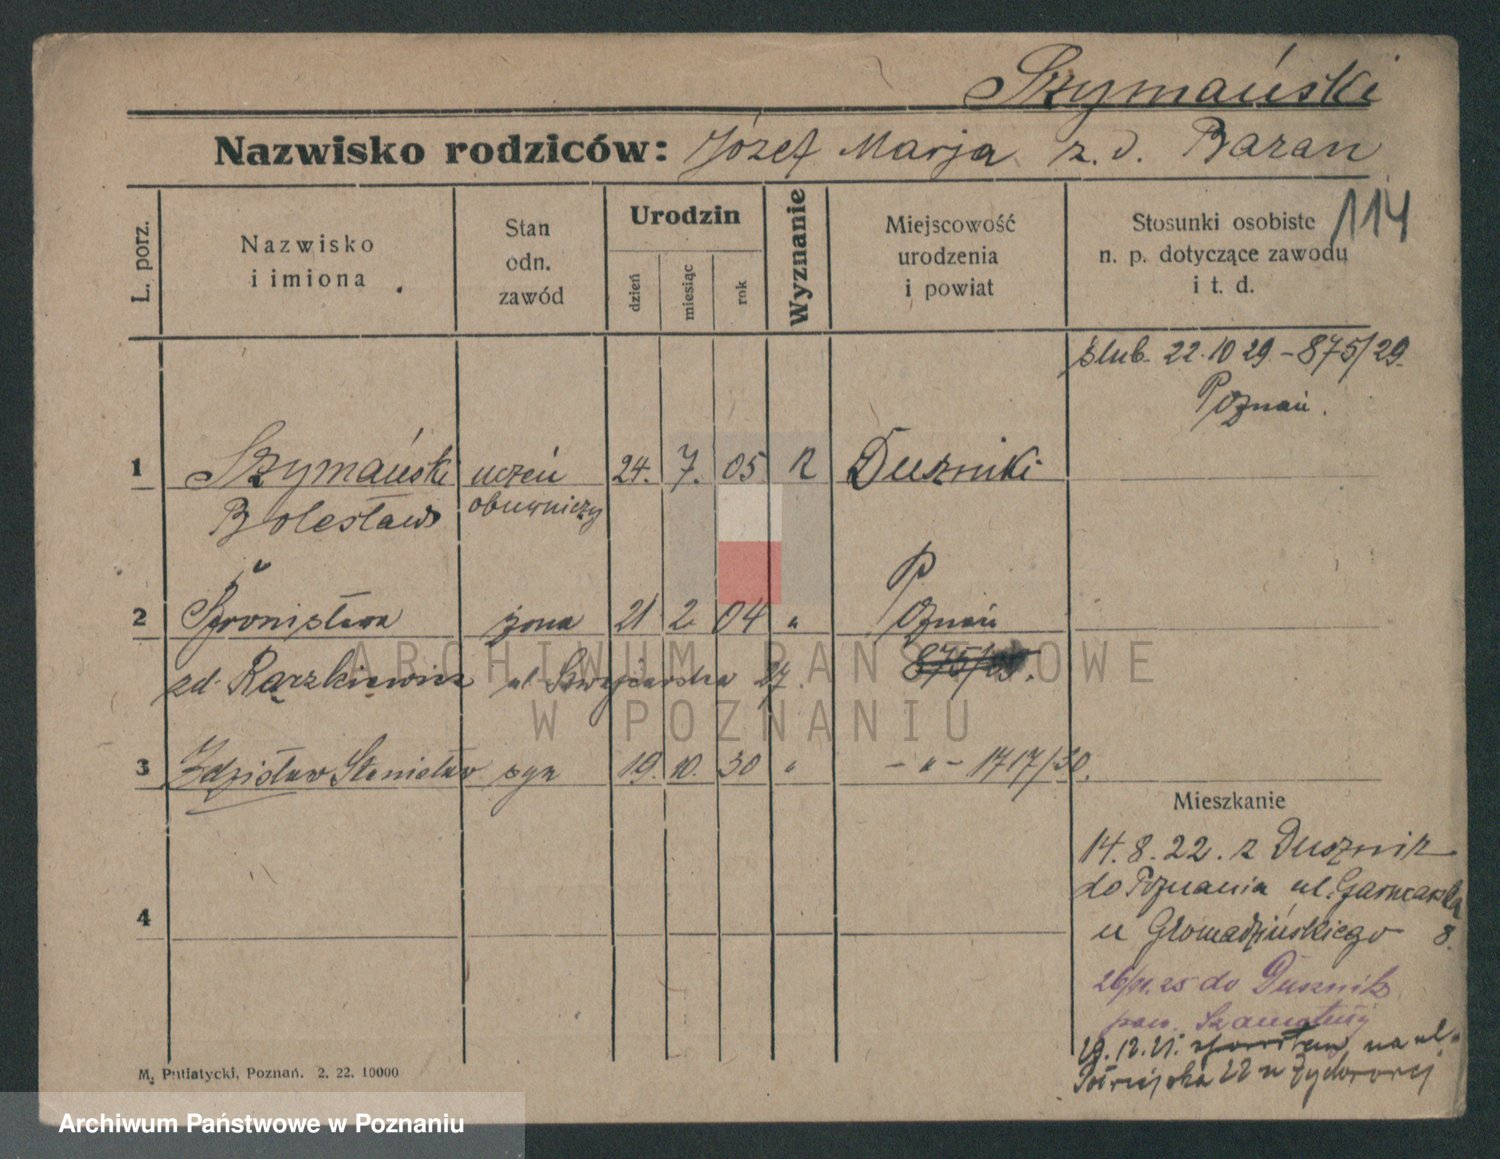 Szymański
Nazwisko rodziców: Józef Marja z. d. Baran
114
L. porz.
Nazwisko
i imiona
Stan
odn.
zawód
Urodzin
dzień
miesiąc
rok
Wyznanie
Miejscowość
urodzenia
i powiat
Stosunki osobiste
n. p. dotyczące zawodu
i t. d.
ślub 22.10 29 - 875/29
Poznań.
1 Szymański uczeń 24. 7. 05 r Duszniki
Bolesław obuwniczy
2 Bronisława żona 21 2 04 " Poznań
zd. Rączkiewicz ul. Szwajcarska 27. 875/
3 Zdzisław Stanisław syn 19. 10. 30 " - " - 1717/30.
Mieszkanie
14.8.22. z Dusznik
do Poznania ul. Garncarska
4
u Gromadzińskiego 8.
do Dusznik
pow. Szamotuły
na ul.
22 u
M. Putiatycki, Poznań. 2. 22. 10000
ARCHIWUM PAŃSTWOWE
W POZNANIU
Archiwum Państwowe w Poznaniu